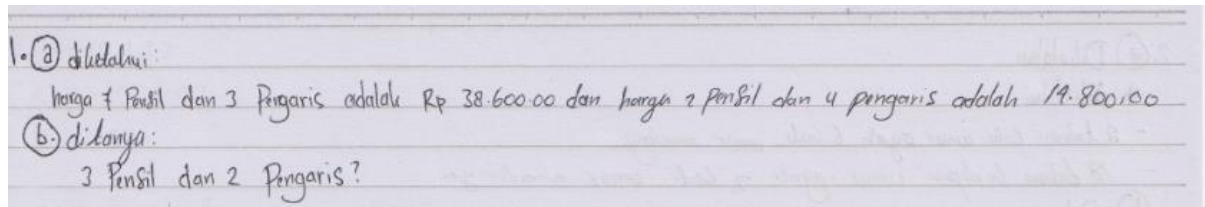 1. (a) diketahui:
harga 7 Pensil dan 3 Pengaris adalah Rp 38.600.00 dan harga 2 pensil dan 4 pengaris adalah 19.800,00
(b.) ditanya:
3 Pensil dan 2 Pengaris?